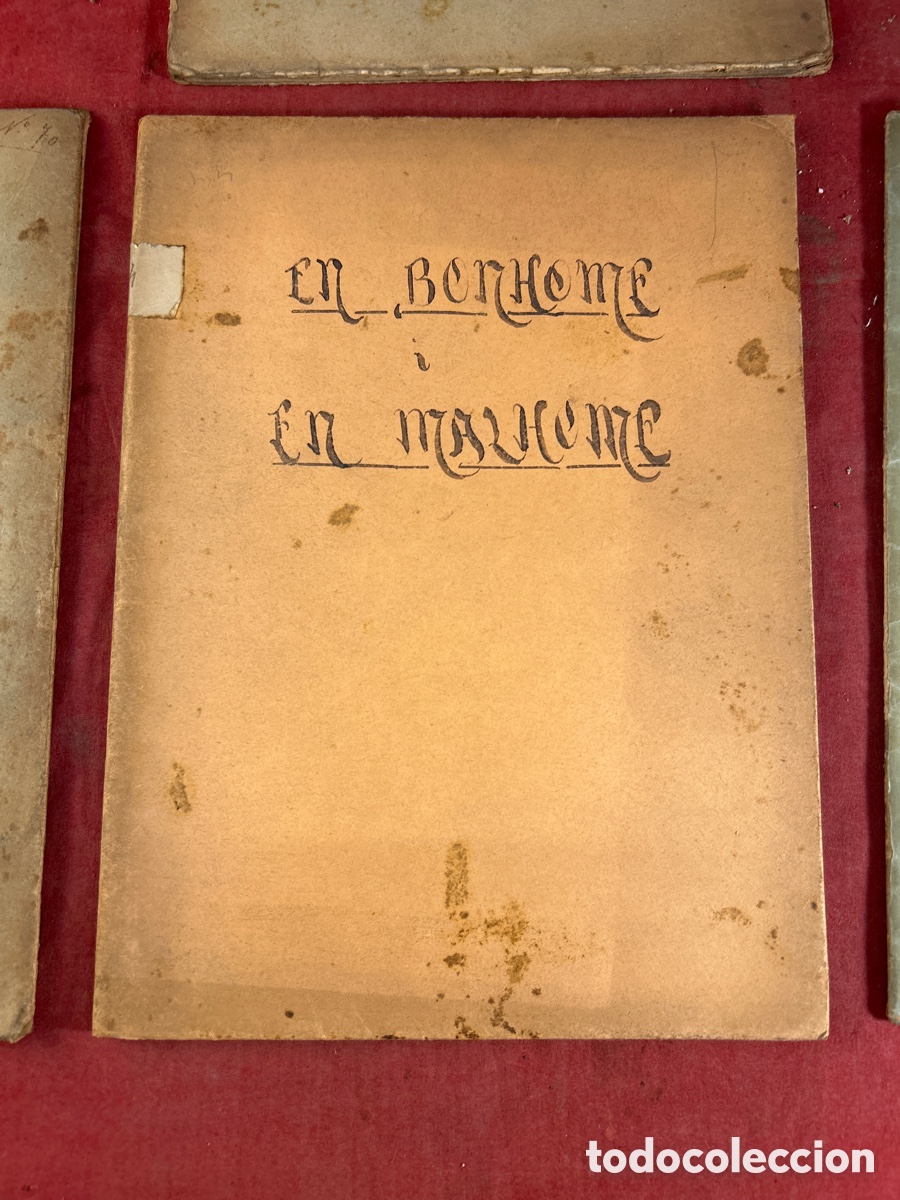 Nº 70
EN BONHOME
i
EN MALHOME
todocoleccion